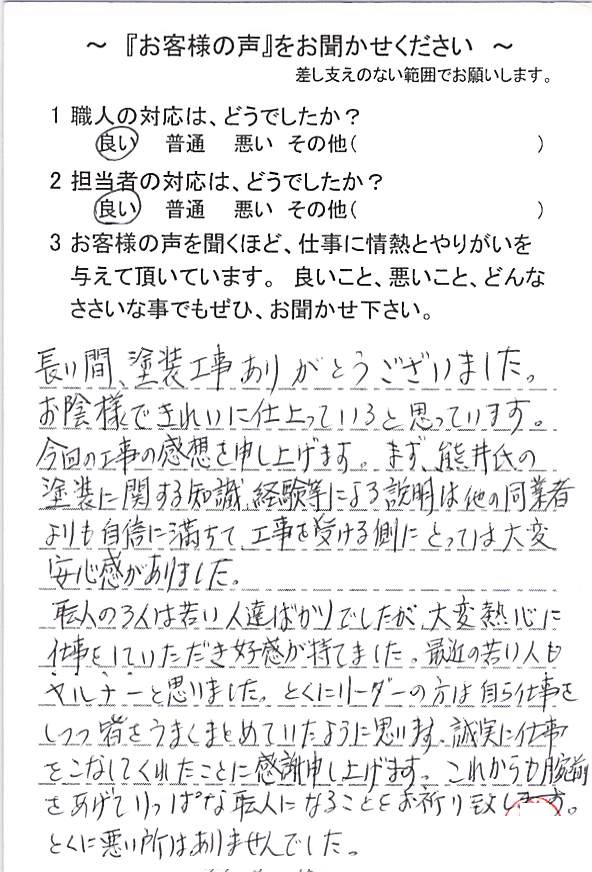 ～ 『お客様の声』をお聞かせください ～
差し支えのない範囲でお願いします。
1 職人の対応は、どうでしたか？
良い 普通 悪い その他( )
2 担当者の対応は、どうでしたか？
良い 普通 悪い その他( )
3 お客様の声を聞くほど、仕事に情熱とやりがいを
与えて頂いています。 良いこと、悪いこと、どんな
ささいな事でもぜひ、お聞かせ下さい。
長い間、塗装工事ありがとうございました。
お陰様できれいに仕上っていると思っています。
今回の工事の感想を申し上げます。まず、熊井氏の
塗装に関する知識、経験等による説明は他の同業者
よりも自信に満ちて、工事を受ける側にとっては大変
安心感がありました。
職人の3人は若い人達ばかりでしたが、大変熱心に
仕事をしていただき好感が持てました。最近の若い人も
ヤルナーと思いました。とくにリーダーの方は自ら仕事を
しつつ皆をうまくまとめていたように思います。誠実に仕事
をこなしてくれたことに感謝申し上げます。これからも腕前
をあげてりっぱな職人になることをお祈り致します。
とくに悪い所はありませんでした。